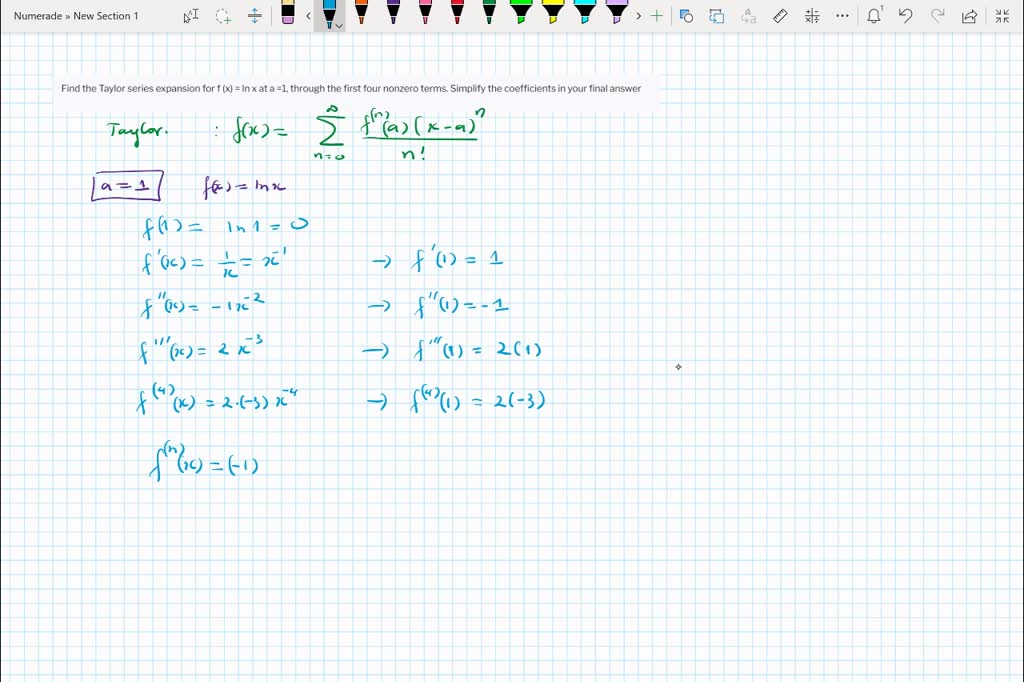 Numerade » New Section 1
Find the Taylor series expansion for f (x) = ln x at a =1, through the first four nonzero terms. Simplify the coefficients in your final answer
Taylor. : f(x) = ∞∑n=0 f⁽ⁿ⁾(a)(x-a)ⁿ / n!
a = 1 f(x) = ln x
f(1) = ln 1 = 0
f'(x) = 1/x = x⁻¹ → f'(1) = 1
f''(x) = -1x⁻² → f''(1) = -1
f'''(x) = 2 x⁻³ → f'''(1) = 2(1)
f⁽⁴⁾(x) = 2·(-3) x⁻⁴ → f⁽⁴⁾(1) = 2(-3)
f⁽ⁿ⁾(x) = (-1)